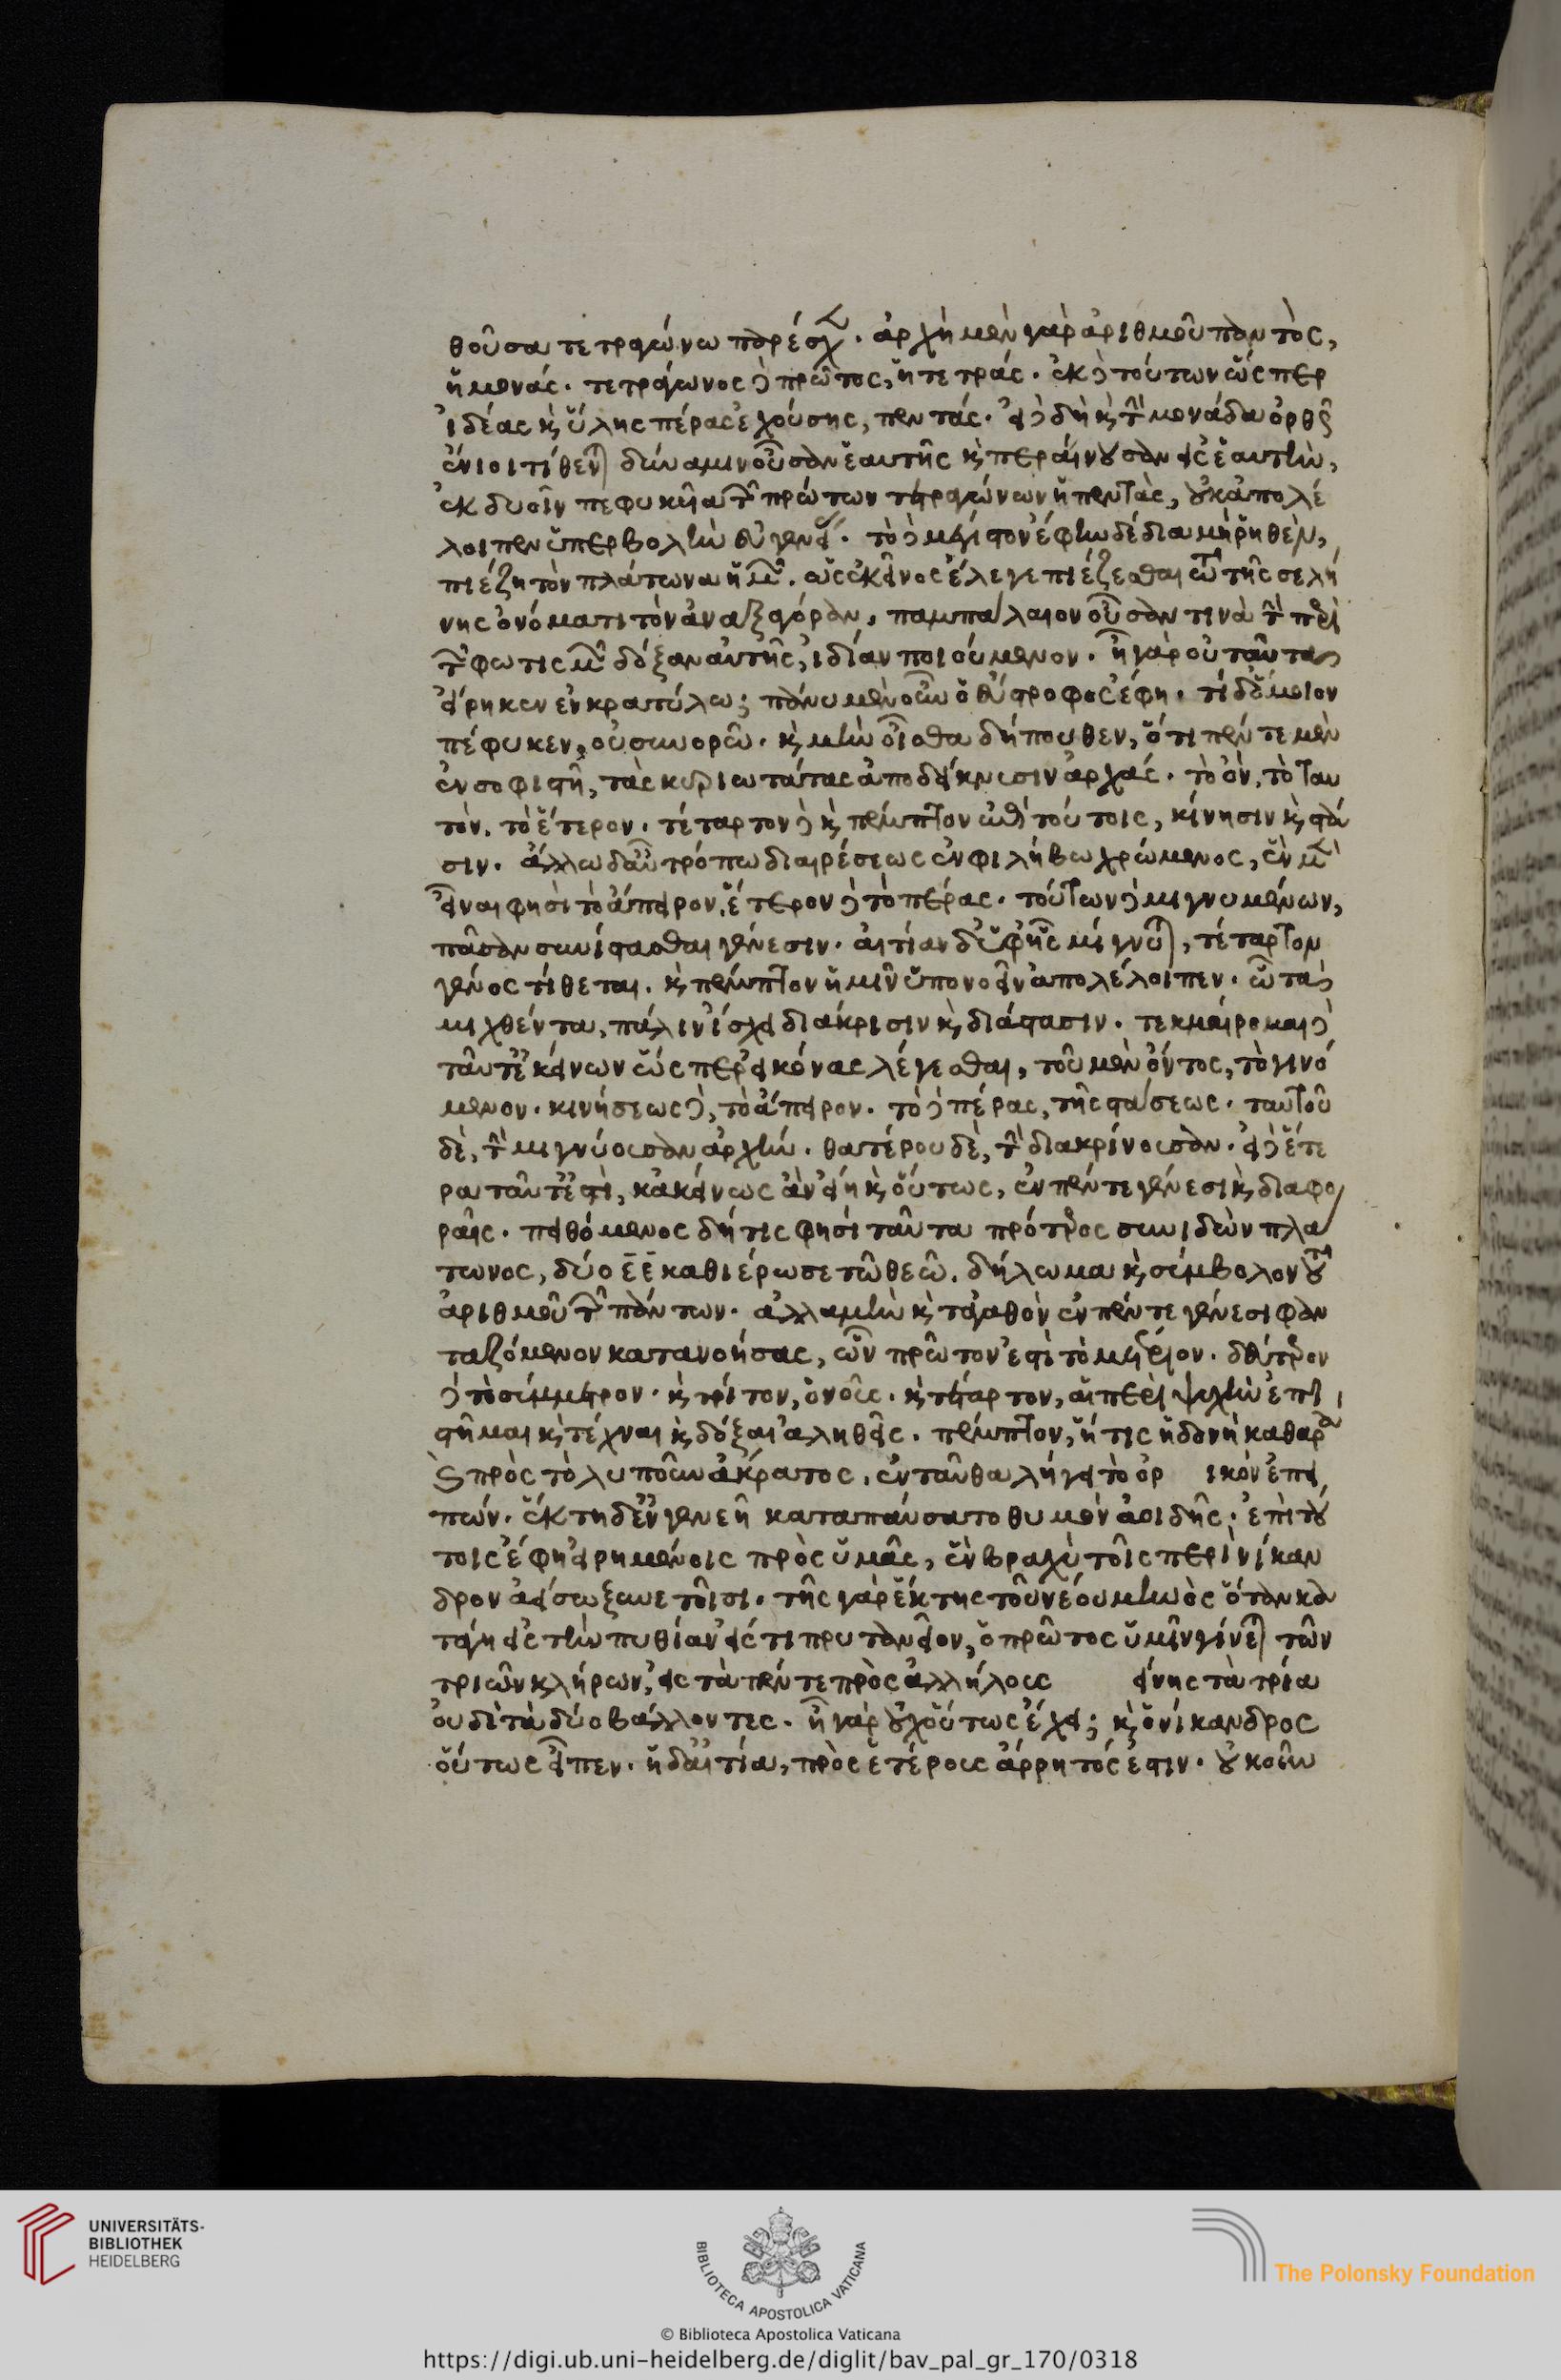 θοῦσα τετραγώνω παρέσχεν. ἀρχὴ μὲν γὰρ ἀριθμοῦ παντὸς,
ἡ μονάς. τετράγωνος δὲ πρῶτος, ἡ τετράς. ἐκ δὲ τούτων ὥσπερ
ἰδέας καὶ ὕλης πέρας ἐχούσης, πεντάς. εἰ δὲ δὴ καὶ τὴν μονάδα ὀρθῶς
ἔνιοι τίθενται δυνάμιν οὖσαν ἑαυτῆς καὶ περαίνουσαν εἰς ἑαυτὴν,
ἐκ δυοῖν πεφυκυῖα τῶν πρώτων τετραγώνων ἡ πεντὰς, οὐκ ἀπολέ
λοιπεν ὑπερβολὴν εὐγενείας. τὸ δὲ μέγιστον ἔφην δέδια μὴ ῥηθὲν,
πιέζῃ τὸν πλάτωνα ἡμῶν. ὡς ἐκεῖνος ἔλεγε πιέζεσθαι τῶ τῆς σελή
νης ὀνόματι τὸν ἀναξαγόραν, παμπάλαιον οὖσαν τινὰ τὴν περὶ
τῶν φωτισμῶν δόξαν αὐτῆς, ἰδίαν ποιούμενον. ἦ γὰρ οὐ ταῦτα
εἴρηκεν ἐν κρατύλω; πάνυ μὲν οὖν ὁ εὔστροφος ἔφη. τί δ' ὅμοιον
πέφυκεν, οὐ συνορῶ. καὶ μὴν οἶσθα δήπουθεν, ὅτι πέντε μὲν
ἐν σοφιστῇ, τὰς κυριωτάτας ἀποδείκνυσιν ἀρχάς. τὸ ὂν, τὸ ταυ
τόν, τὸ ἕτερον. τέταρτον δὲ καὶ πέμπτον ἐπὶ τούτοις, κίνησιν καὶ στά
σιν. ἄλλω δ' αὖ τρόπω διαιρέσεως ἐν φιλήβω χρώμενος, ἓν μὲν
εἶναι φησὶ τὸ ἄπειρον, ἕτερον δὲ τὸ πέρας. τούτων δὲ μιγνυμένων,
πᾶσαν συνίστασθαι γένεσιν. αἰτίαν δ' ὑφ' ἧς μίγνυται, τέταρτον
γένος τίθεται. καὶ πέμπτον ἡμῖν ὑπονοεῖν ἀπολέλοιπεν. ὧ τὰ
μιχθέντα, πάλιν ἴσχει διάκρισιν καὶ διάστασιν. τεκμαίρομαι δὲ
ταῦτ' ἐκείνων ὥσπερ εἰκόνας λέγεσθαι, τοῦ μὲν ὄντος, τὸ γινό
μενον. κινήσεως δὲ, τὸ ἄπειρον. τὸ δὲ πέρας, τῆς στάσεως. ταυτοῦ
δὲ, τὴν μιγνύουσαν ἀρχήν. θατέρου δὲ, τὴν διακρίνουσαν. εἰ δὲ ἕτε
ρα ταῦτ' ἐστὶ, κἀκείνως ἂν εἴη καὶ οὕτως, ἐν πέντε γένεσι καὶ διαφο
ραῖς. πειθόμενος δή τις φησὶ ταῦτα πρότερος συνιδὼν πλά
τωνος, δύο ε ε καθιέρωσε τῶ θεῶ. δήλωμα καὶ σύμβολον τοῦ
ἀριθμοῦ τῶν πάντων. ἀλλαμὴν καὶ τἀγαθὸν ἐν πέντε γένεσι φαν
ταζόμενον κατανοήσας, ὧν πρῶτον ἐστὶ τὸ μέτριον. δεύτερον
δὲ τὸ σύμμετρον. καὶ τρίτον, ὁ νοῦς. καὶ τέταρτον, αἱ περὶ ψυχὴν ἐπι
στῆμαι καὶ τέχναι καὶ δόξαι ἀληθεῖς. πέμπτον, ἥ τις ἡδονὴ καθαρὰ
καὶ πρὸς τὸ λυποῦν ἄκρατος, ἐνταῦθα λήγει τὸ ὀρ ικὸν ἐπει
πών. ἕκτη δ' ἐν γενεῇ καταπαύσατο θυμὸν ἀοιδῆς. ἐπὶ τού
τοις ἔφη εἰρημένοις πρὸς ὑμᾶς, ἓν βραχὺ τοῖς περὶ νίκαν
δρον ἀείσω ξυνετοῖσι. τῆς γὰρ ἕκτης τοῦ νέου μηνὸς ὅταν κα
τάγῃ εἰς τὴν πυθίαν εἴς τι πρυτανεῖον, ὁ πρῶτος ὑμῖν γίνεται τῶν
τριῶν κλήρων, εἰς τὰ πέντε πρὸς ἀλλήλους είνης τὰ τρία
ουδὲ τὰ δύο βάλλοντες. ἦ γὰρ οὐχ οὕτως ἔχει; καὶ ὁ νίκανδρος
οὕτως εἶπεν. ἡ δ' αἰτία, πρὸς ἑτέρους ἄρρητός ἐστιν. οὐκοῦν
UNIVERSITÄTS-
BIBLIOTHEK
HEIDELBERG
BIBLIOTECA APOSTOLICA VATICANA
The Polonsky Foundation
© Biblioteca Apostolica Vaticana
https://digi.ub.uni-heidelberg.de/diglit/bav_pal_gr_170/0318